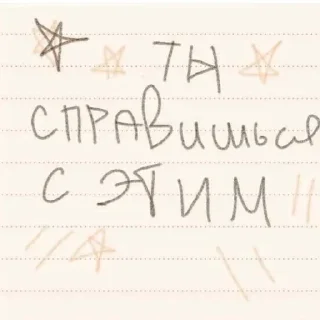 ты
справишься
с этим